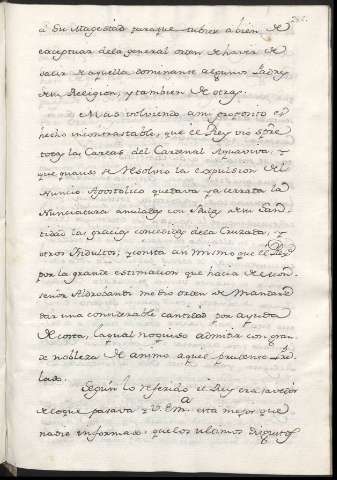 à Su Magestad paraque tubiese a bien de
exceptuar dela general orden de haver de
salir de aquella dominante algunos Padres
de su Religion, y tambien de otras.
Mas volviendo ami proposito es
hecho incontrastable, que el Rey vio
todas las Cartas del Cardenal Aquaviva, y
que quando se resolvio la expulsion del
Nuncio Apostolico quedava ya cerrada la
Nunciatura anuladas con Bula de su San
tidad las gracias concedidas dela Cruzada, y
otros Indultos; y consta asi mismo que el Rey
por la grande estimacion que hacia de Mon
señor Aldrobandi me dio orden de mandar
dar una considerable cantidad por ayuda
de costa, laqual noquiso admitir con gran
de nobleza de animo aquel prudente Pre
lado.
Segun lo referido el Rey era savedor
de loque pasava y V. Em.ª esta mejor que
nadie informado, que los ultimos disgustos